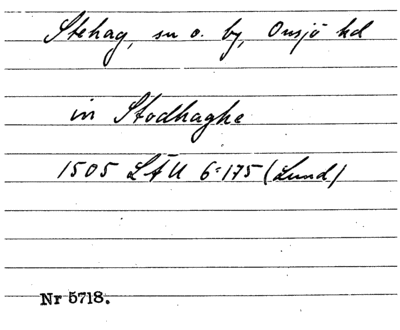 Stehag, sn o. by, Onsjö hd
in Stodhaghe
1505 LÄU 6:175 (Lund)
Nr 5718.